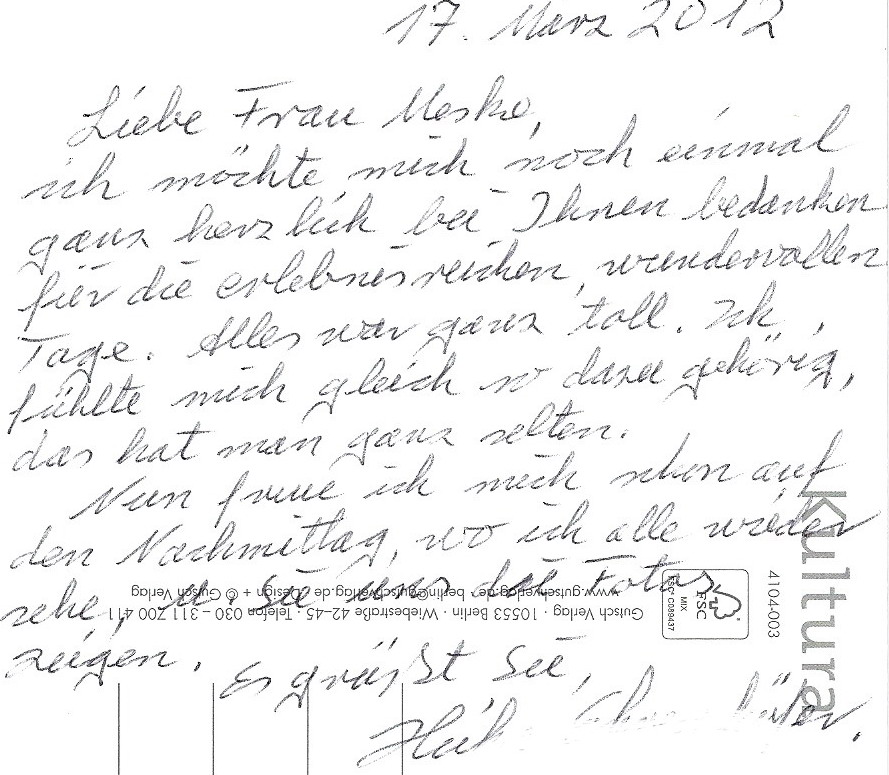 17. März 2012
Liebe Frau Meske,
ich möchte mich noch einmal
ganz herzlich bei Ihnen bedanken
für die erlebnisreichen, wundervollen
Tage. Alles war ganz toll. Ich
fühlte mich gleich so dazu gehörig,
das hat man ganz selten.
Nun freue ich mich schon auf
den Nachmittag, wo ich alle wieder
sehe, u. Sie uns die Fotos
zeigen.
Es grüßt Sie,
Kultura
4104003
FSC
MIX
FSC C009437
Gutsch Verlag · 10553 Berlin · Wiebestraße 42–45 · Telefon 030 – 311 700 411
www.gutschverlag.de · berlin@gutschverlag.de · Design + © Gutsch Verlag